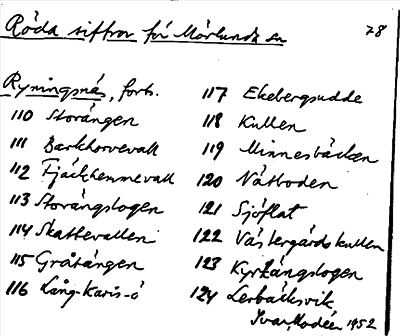 Röda siffror för Mörlunda sn
78
Ryningsnäs, forts.
110 Storängen
111 Barkhorvevall
112 Fjäckhemmevall
113 Storängslogen
114 Skattevallen
115 Gråtängen
116 Lång-Karis-ö
117 Ekebergsudde
118 Kullen
119 Minnesbäcken
120 Nätboden
121 Sjöflat
122 Västergårdskullen
123 Kyrkängslogen
124 Lerbäcksvik
Ivar Modéer 1952